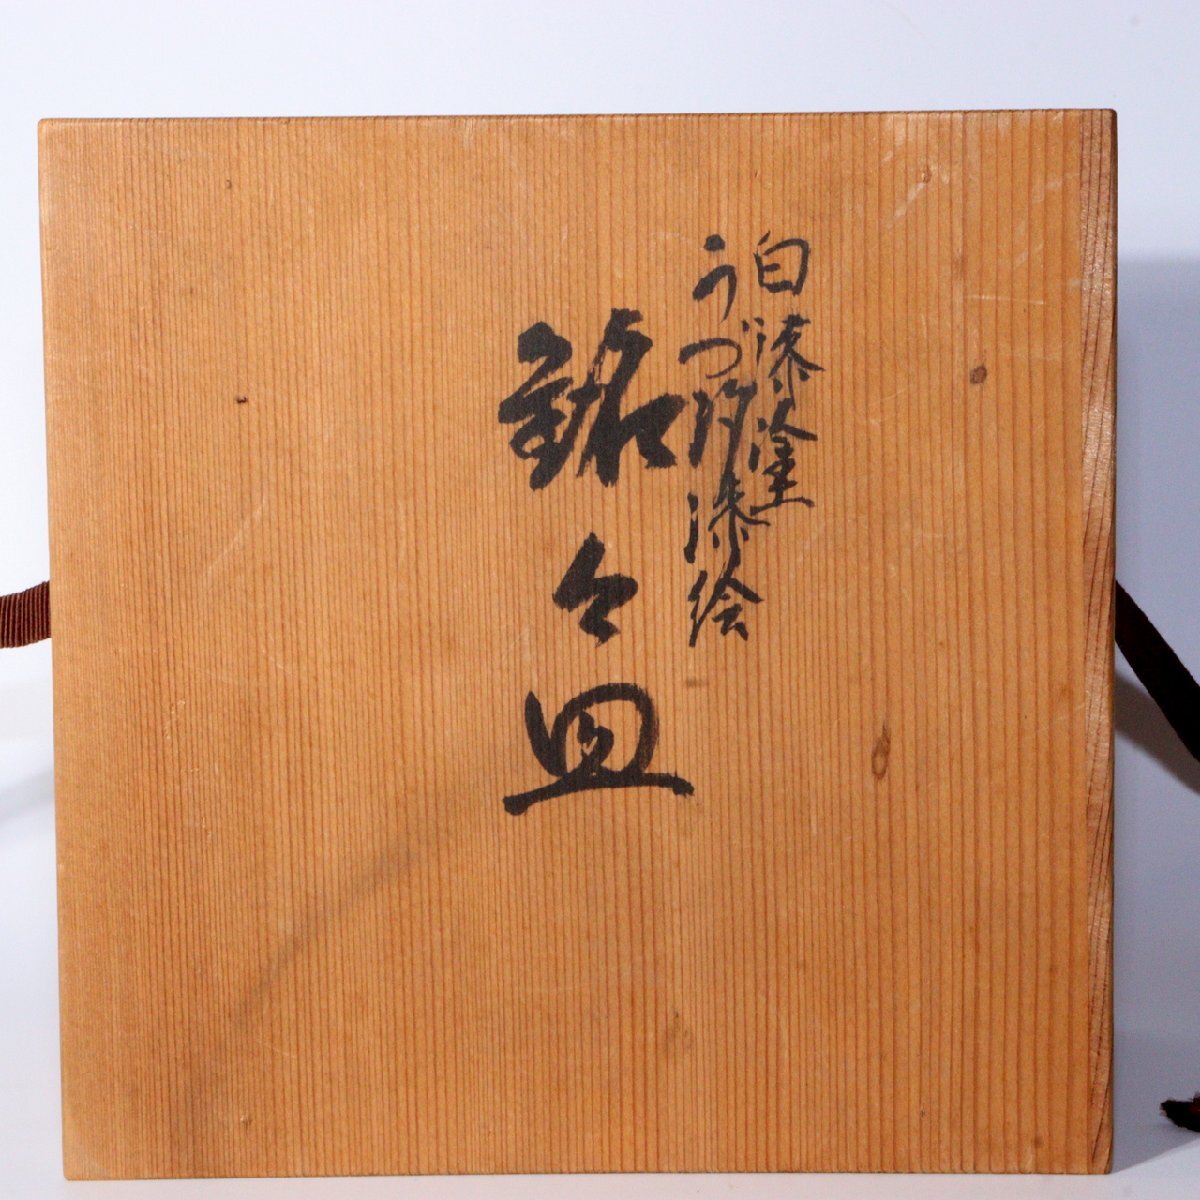 白漆塗
うづ汐漆絵
銘々皿